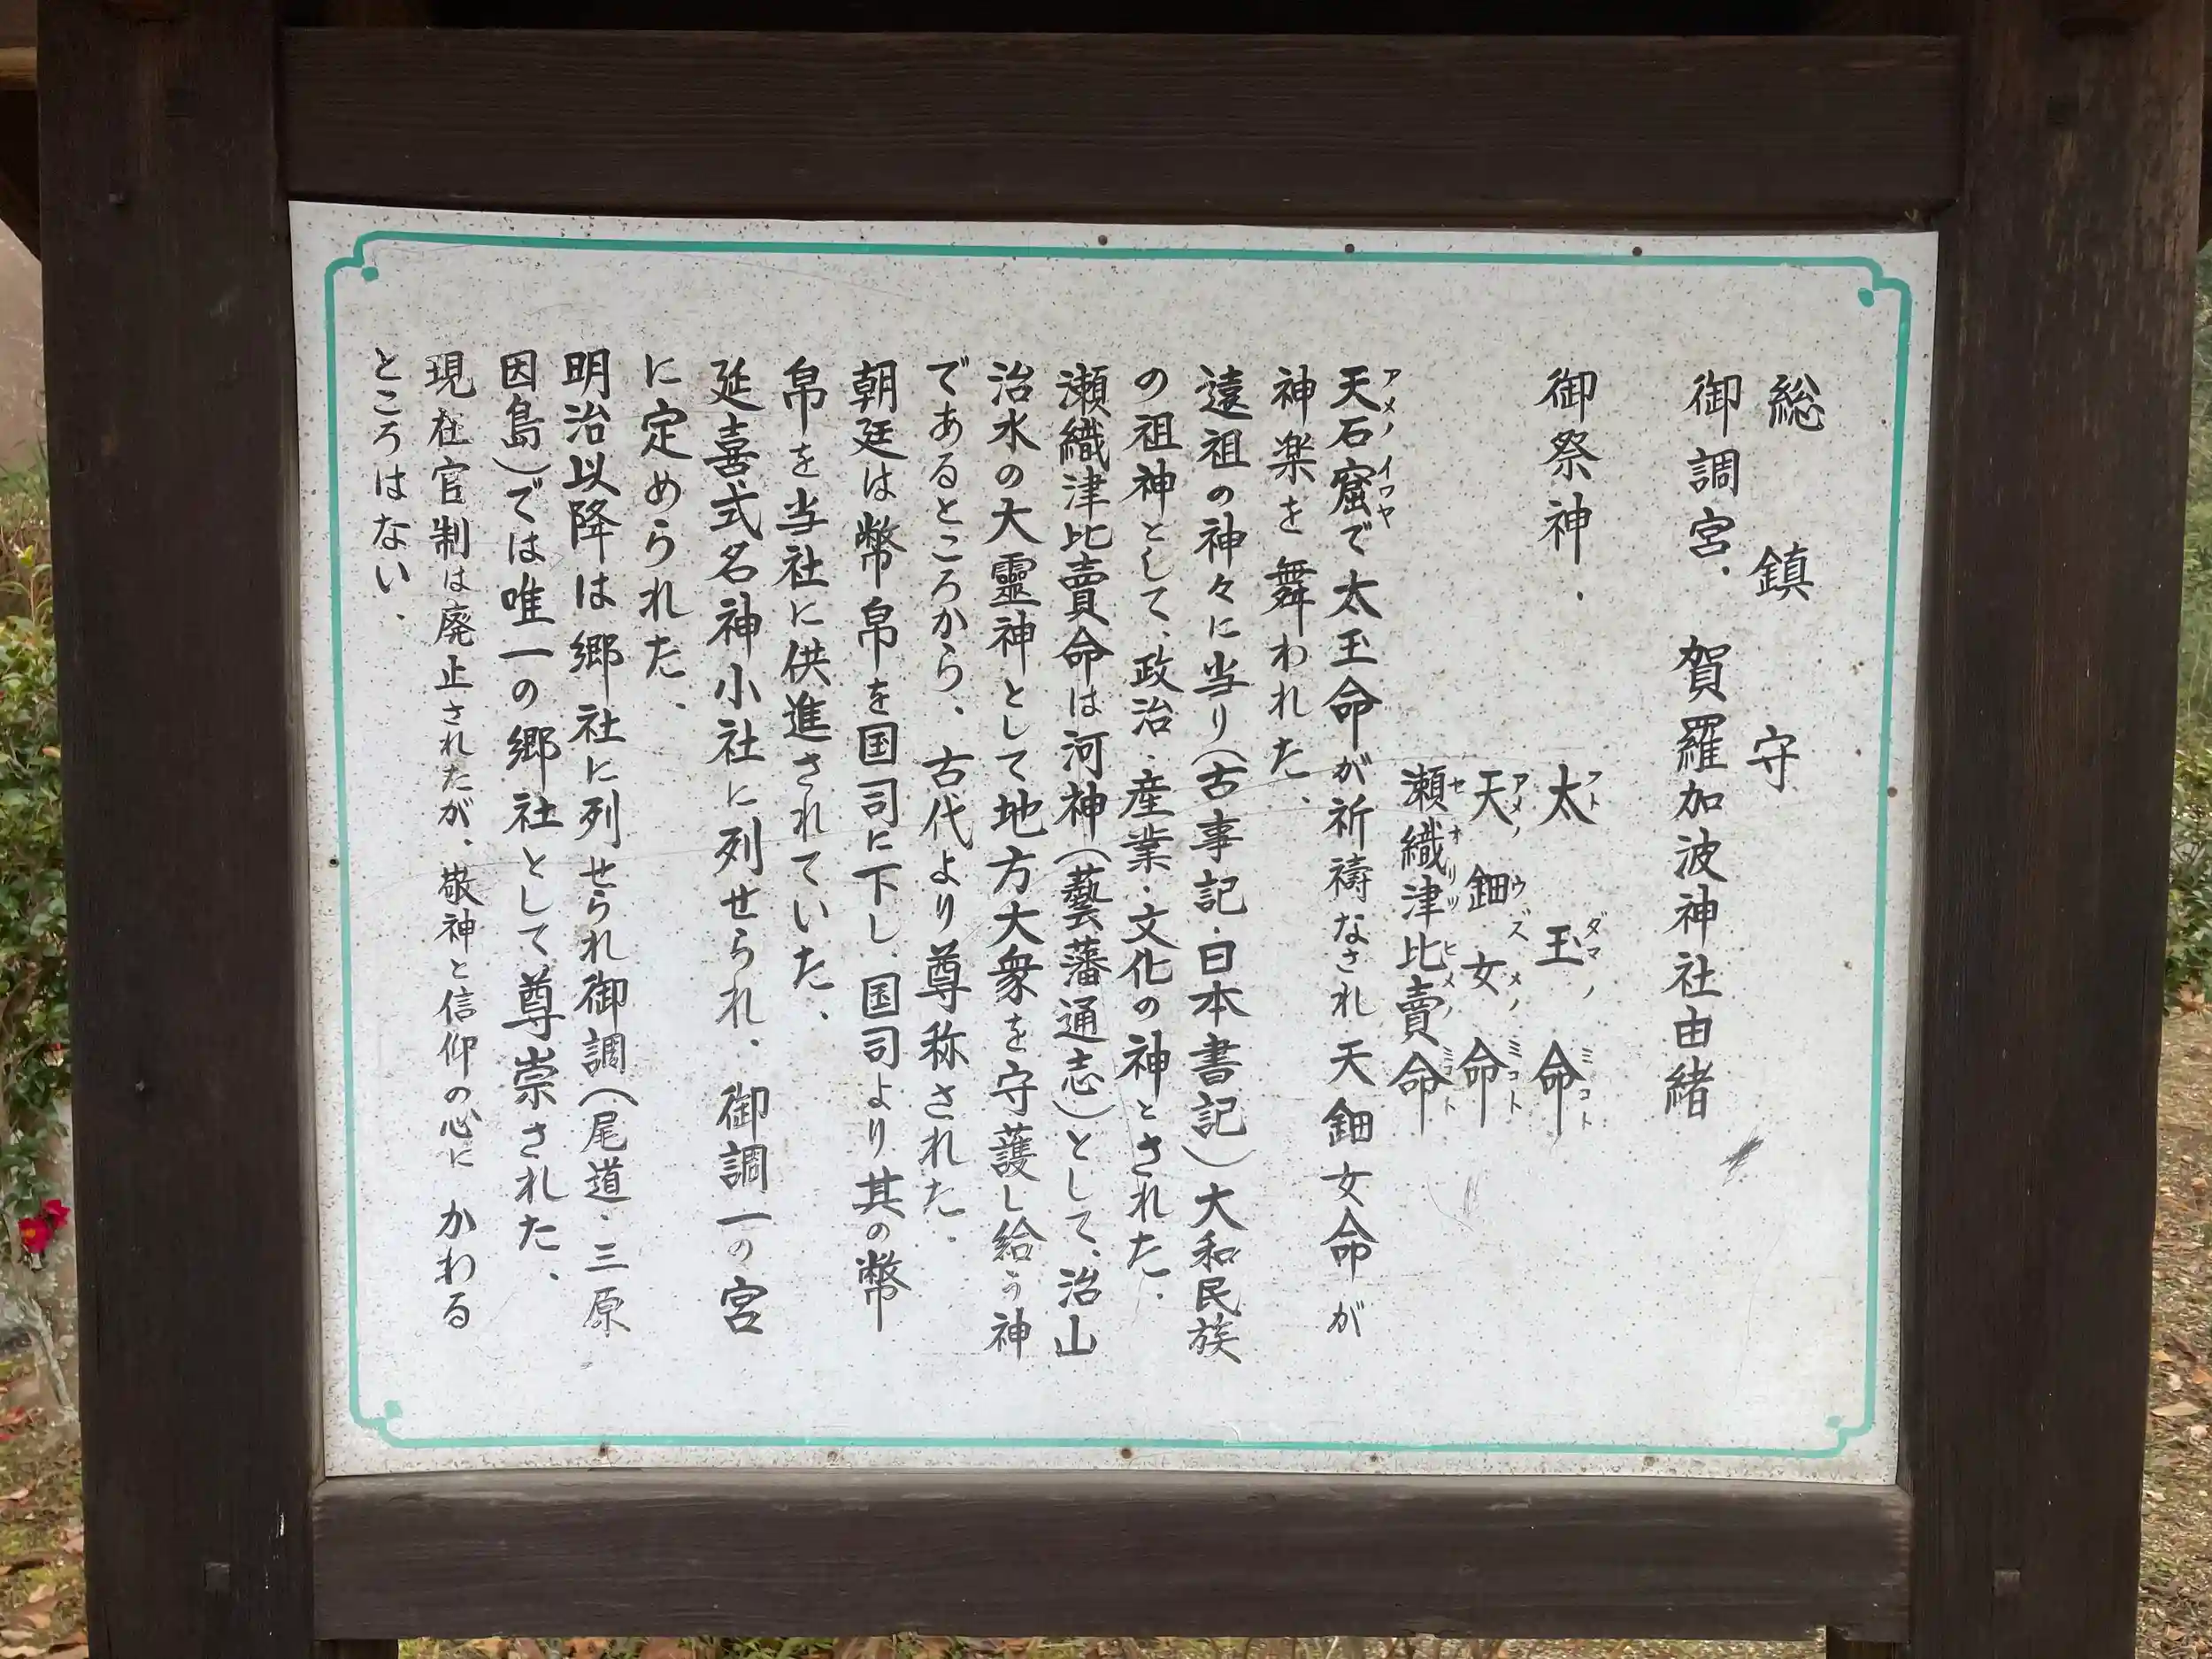 総鎮守
御調宮・賀羅加波神社由緒
御祭神・太玉命
天鈿女命
瀬織津比賣命
天石窟で太玉命が祈禱なされ天鈿女命が
神楽を舞われた、
遠祖の神々に当り(古事記・日本書記)大和民族
の祖神として、政治・産業・文化の神とされた、
瀬織津比賣命は河神(藝藩通志)として、治山
治水の大靈神として地方大衆を守護し給う神
であるところから、古代より尊称された、
朝廷は幣帛を国司に下し、国司より其の幣
帛を当社に供進されていた、
延喜式名神小社に列せられ、御調一の宮
に定められた、
明治以降は郷社に列せられ御調(尾道・三原
因島)では唯一の郷社として尊崇された、
現在官制は廃止されたが、敬神と信仰の心に かわる
ところはない、
フトダマノミコト
アメノウズメノミコト
セオリツヒメノミコト
アメノイワヤ